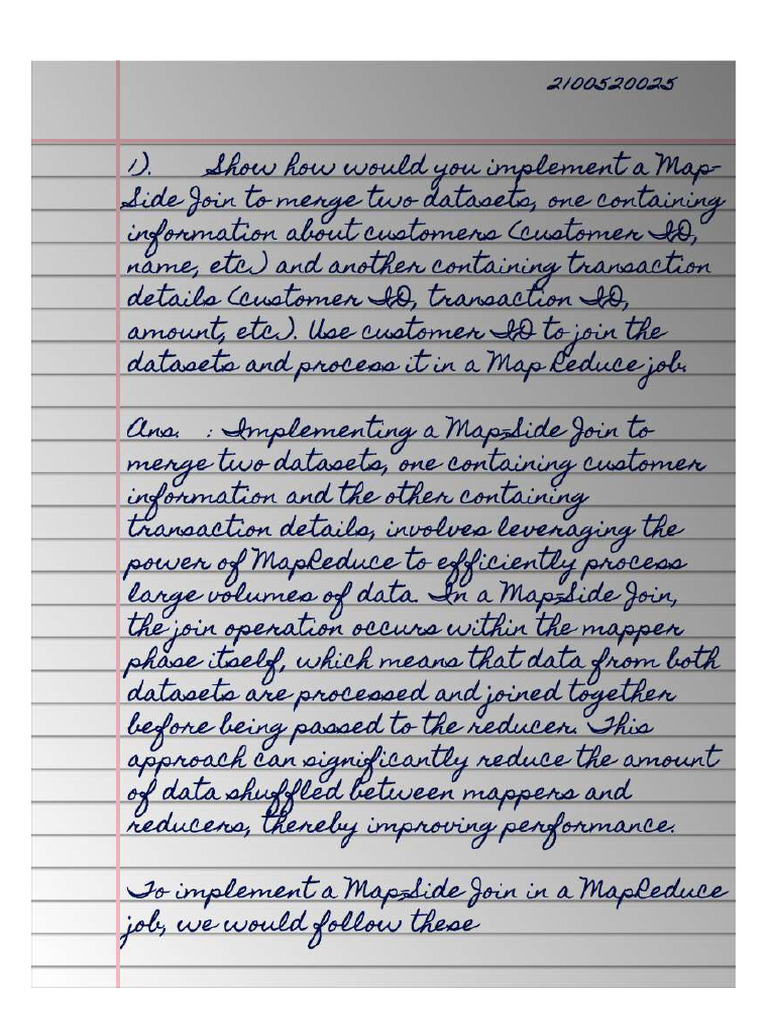 2100520025
1). Show how would you implement a Map-
Side Join to merge two datasets, one containing
information about customers (customer ID,
name, etc.) and another containing transaction
details (customer ID, transaction ID,
amount, etc.). Use customer ID to join the
datasets and process it in a Map Reduce job.
Ans. : Implementing a Map-Side Join to
merge two datasets, one containing customer
information and the other containing
transaction details, involves leveraging the
power of MapReduce to efficiently process
large volumes of data. In a Map-Side Join,
the join operation occurs within the mapper
phase itself, which means that data from both
datasets are processed and joined together
before being passed to the reducer. This
approach can significantly reduce the amount
of data shuffled between mappers and
reducers, thereby improving performance.
To implement a Map-Side Join in a MapReduce
job, we would follow these